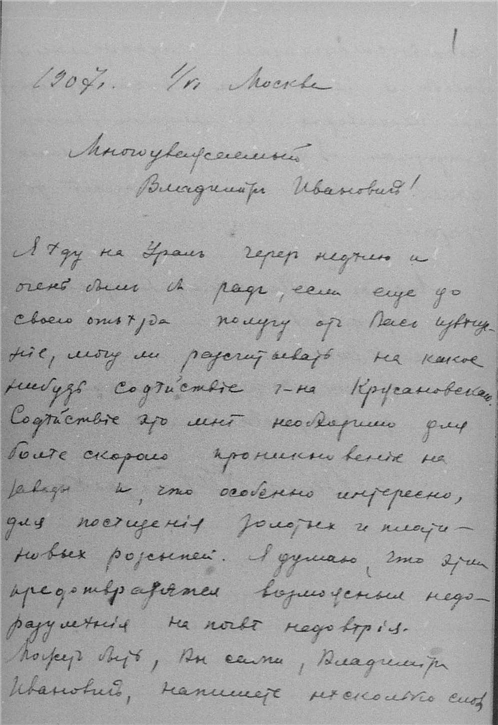 1
1907г. 1/VI Москва
Многоуважаемый
Владимiръ Ивановичъ!
Я ѣду на Уралъ черезъ недѣлю и
очень былъ бы радъ, если еще до
своего отъѣзда получу отъ Васъ извѣще-
нiе, могу ли разсчитывать на какое
нибудь содѣйствiе г-на Крусановскаго.
Содѣйствiе это мнѣ необходимо для
болѣе скораго проникновенiя на
заводы и, что особенно интересно,
для посѣщенiя золотыхъ и плати-
новыхъ розсыпей. Я думаю, что этимъ
предотвратятся возможныя недо-
разумѣнiя на почвѣ недовѣрiя.
Можетъ быть, Вы сами, Владимiръ
Ивановичъ, напишете нѣсколько словъ